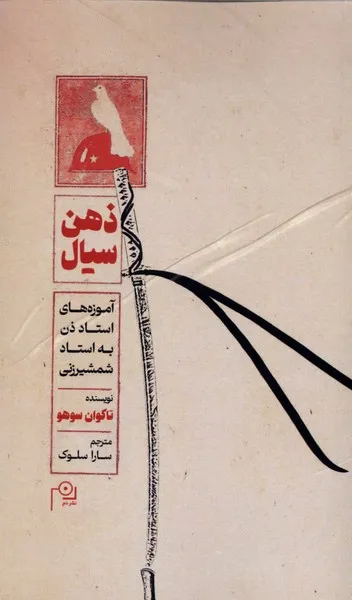 ذهن
سیال
آموزه‌های
استاد ذن
به استاد
شمشیرزنی
نویسنده
تاکوان سوهو
مترجم
سارا سلوک